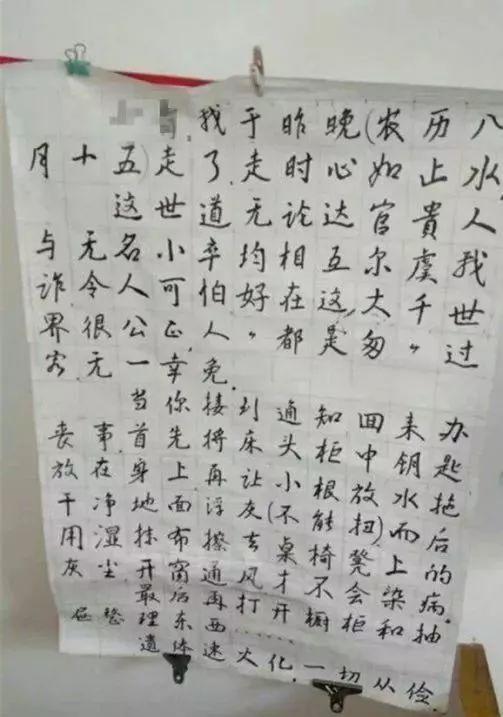 找于昨晚(农历八
月十五)走了,走时心如止水,
这世道无论达官貴人
与无名小卒均相互尔虞我
诈令人可怕好在这大千世
界很公正人〃都是匆〃过
客无一幸免.
当你接到通知回来办
丧事首先将床头柜中钥匙
放在身上再让小根放水拖
干净地面浮灰(不能扭)而后
用湿抹布擦去桌椅凳上的
灰尘开窗通风才不会染病.
最后再打开橱柜和抽
屉整理东西……
遗体速火化,一切从俭.